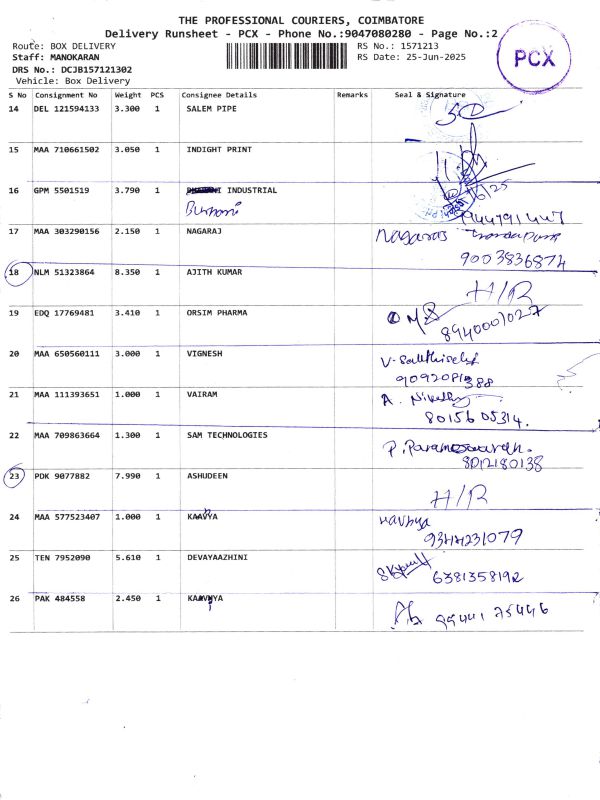 THE PROFESSIONAL COURIERS, COIMBATORE
Delivery Runsheet - PCX - Phone No.:9047080280 - Page No.:2
Route: BOX DELIVERY
RS No.: 1571213
Staff: MANOKARAN
RS Date: 25-Jun-2025
DRS No.: DCJB157121302
Vehicle: Box Delivery
PCX
S No Consignment No Weight PCS Consignee Details Remarks Seal & Signature
14 DEL 121594133 3.300 1 SALEM PIPE
15 MAA 710661502 3.050 1 INDIGHT PRINT
16 GPM 5501519 3.790 1 INDUSTRIAL
17 MAA 303290156 2.150 1 NAGARAJ Nagaras
9003836874
18 NLM 51323864 8.350 1 AJITH KUMAR H/R
19 EDQ 17769481 3.410 1 ORSIM PHARMA
8940001027
20 MAA 650560111 3.000 1 VIGNESH
21 MAA 111393651 1.000 1 VAIRAM
8015605314.
22 MAA 709863664 1.300 1 SAM TECHNOLOGIES P. Parameswaran.
8012180138
23 PDK 9077882 7.990 1 ASHUDEEN H/R
24 MAA 577523407 1.000 1 KAAVYA
9344231079
25 TEN 7952090 5.610 1 DEVAYAAZHINI
6381358192
26 PAK 484558 2.450 1 KAAVYA
99441 75446